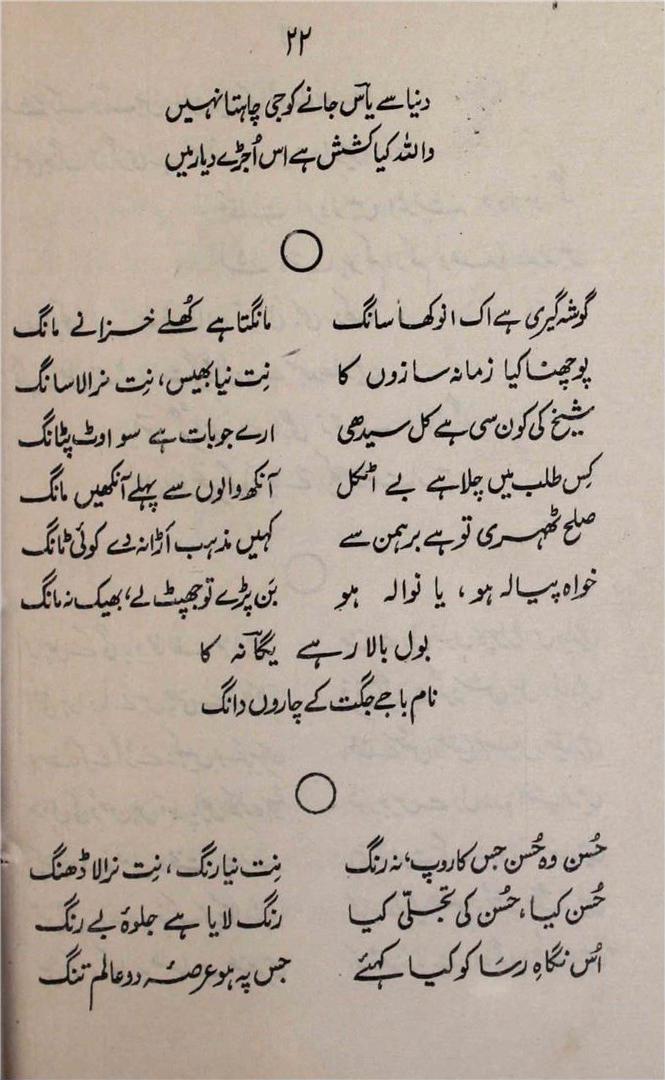 ۲۲
دنیا سے یاسؔ جانے کو جی چاہتا نہیں
واللہ کیا کشش ہے اس اُجڑے دیار میں
گوشہ گیری ہے اک انوکھا سانگ مانگتا ہے کھُلے خزانے مانگ
پوچھنا کیا زمانہ سازوں کا نِت نیا بھیس، نِت نرالا سانگ
شیخ کی کون سی ہے کل سیدھی ارے جو بات ہے سو اوٹ پٹانگ
کِس طلب میں چلا ہے بے اٹکل آنکھ والوں سے پہلے آنکھیں مانگ
صلح ٹھہری تو ہے برہمن سے کہیں مذہب اَڑا نہ دے کوئی ٹانگ
خواہ پیالہ ہو، یا نوالہ ہو بَن پڑے تو جھپٹ لے، بھیک نہ مانگ
بول بالا رہے یگانہؔ کا
نام باجے جگت کے چاروں دانگ
حُسن وہ حُسن جس کا روپ، نہ رنگ نِت نیا رنگ، نِت نرالا ڈھنگ
حُسن کیا، حُسن کی تجلّی کیا رنگ لایا ہے جلوۂ بے رنگ
اُس نگاہِ رسَا کو کیا کہئے جس پہ ہو عرصۂ دو عالم تنگ